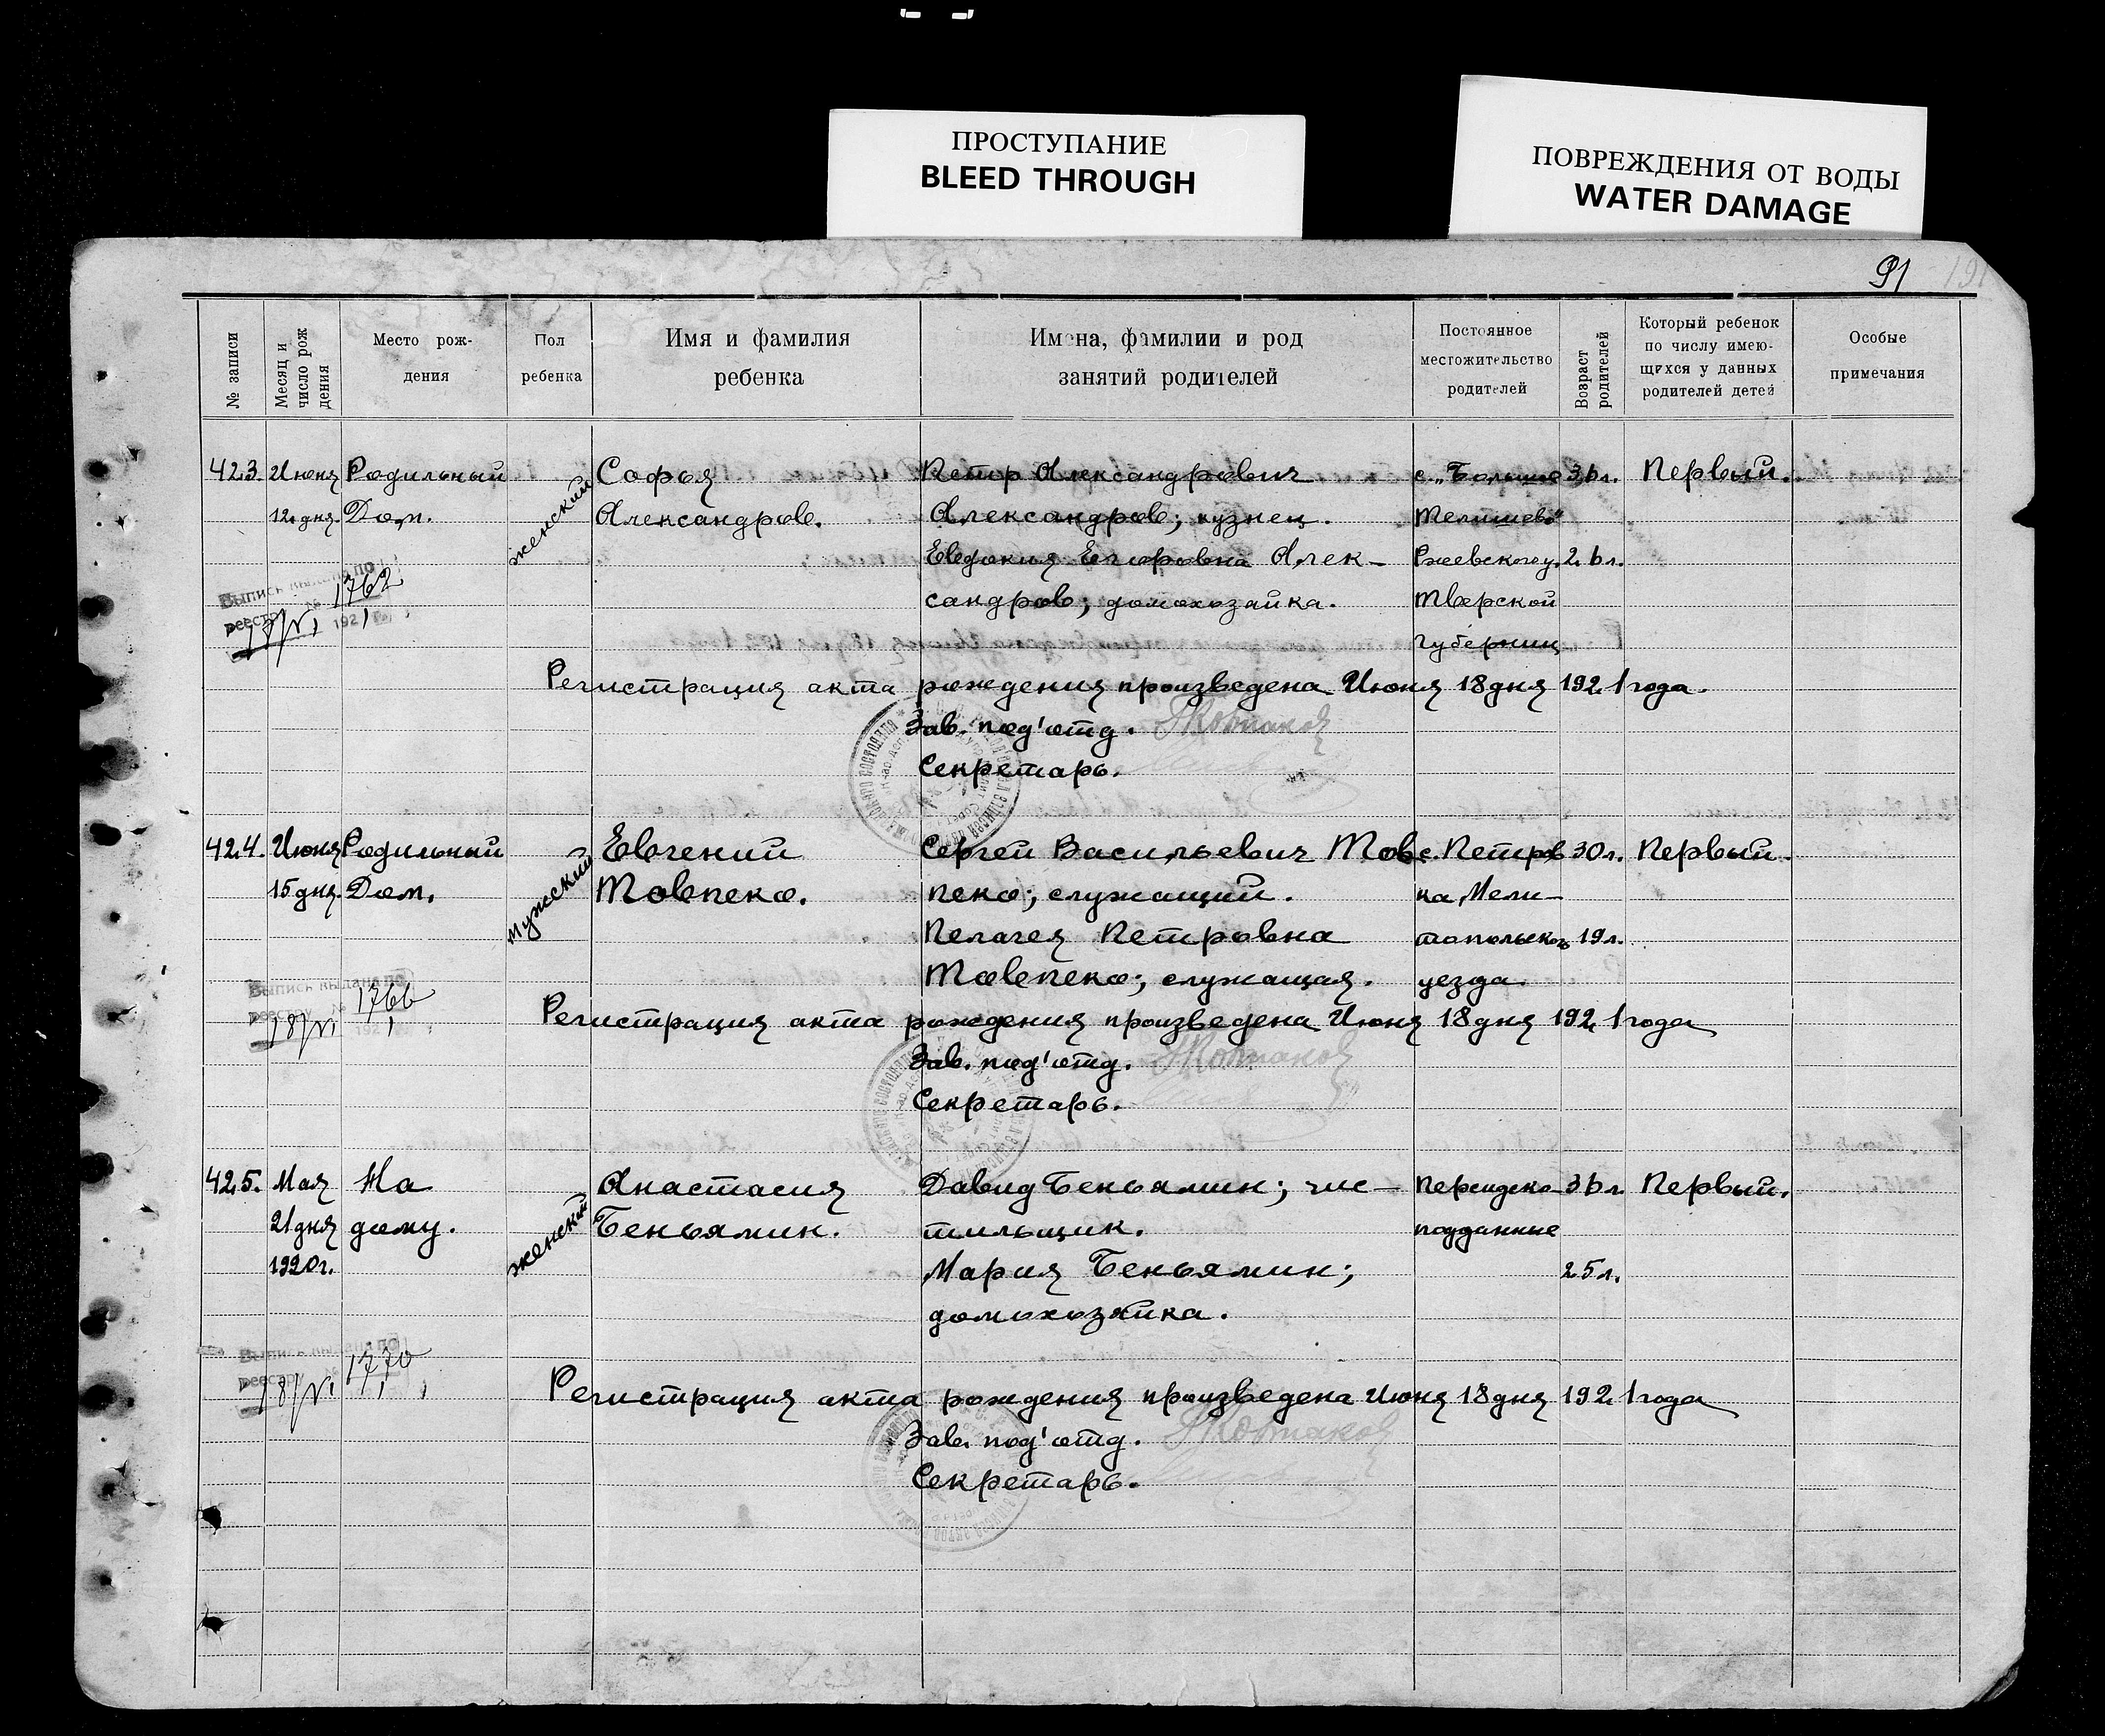 ПРОСТУПАНИЕ
BLEED THROUGH
ПОВРЕЖДЕНИЯ ОТ ВОДЫ
WATER DAMAGE
91
№ записи
Месяц и число рождения
Место рож-
дения
Пол
ребенка
Имя и фамилия
ребенка
Имена, фамилии и род
занятий родителей
Постоянное
местожительство
родителей
Возраст
родителей
Который ребенок
по числу имею-
щихся у данных
родителей детей
Особые
примечания
423. Июня Родильный женский Софья Петр Александрович с. „Большое 36л. Первый.
12 дня. Дом. Александров. Александров; кузнец. Телишево"
Евдокия Егоровна Алек- Ржевского у. 26л.
сандров; домохозайка. Тверской
губернии
Выпись выдана по
реестру № 1762
18/VI 1921 г.
Регистрация акта рождения произведена Июня 18 дня 1921 года.
Зав. под'отд.
Секретарь.
424. Июня Родильный мужский Евгений Сергей Васильевич Тов- с. Петров 30л. Первый.
15 дня. Дом. Товпеко. пеко; служащий. ка Мели-
Пелагея Петровна топольского 19л.
Товпеко; служащая. уезда
Выпись выдана по
реестру № 1766
18/VI 1921
Регистрация акта рождения произведена Июня 18 дня 1921 года
Зав. под'отд.
Секретарь.
425. Мая На женский Анастасия Давид Беньямин; чис- Персидско- 36л. Первый.
21 дня дому. Беньямин. тильщик. подданные
1920г. Мария Беньямин; 25л.
домохозяйка.
Выпись выдана по
реестру № 1770
18/VI
Регистрация акта рождения произведена Июня 18 дня 1921 года
Зав. под'отд.
Секретарь.